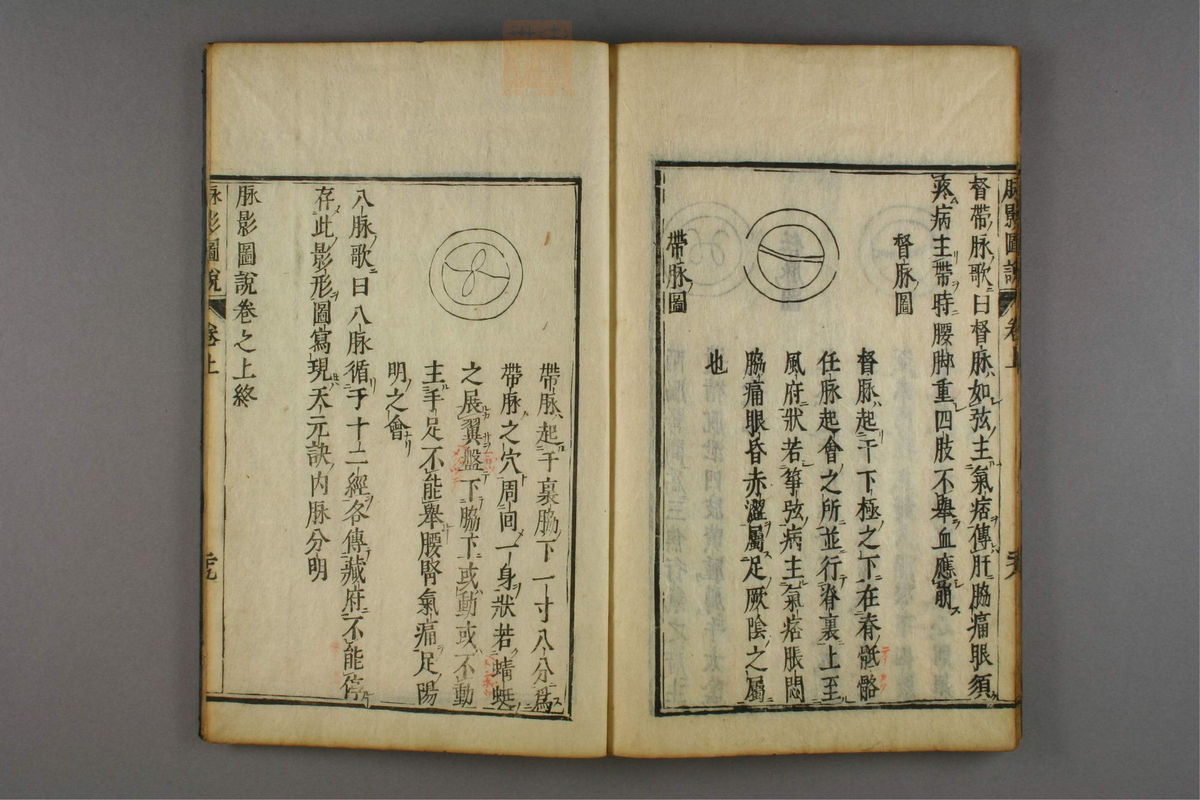 脉影圖說 卷上
督帶脉歌曰督脉如弦主氣痞傳肝脇痛眼須
疼病主帶時腰脚重四肢不舉血應
督脉圖
督脉起于下極之下在脊骶骼
任脉起會之所並行脊裏上至
風府狀若箏弦病主氣痞脹悶
脇痛眼昏赤澀屬足厥陰之屬
也
帶脉圖
帶脉起于裏脇下一寸八分爲
帶脉之穴周间一身狀若蜻蜓
之展翼盤下脇下或動或不動
主手足不能舉腰腎氣痛足陽
明之會
八脉歌曰八脉循于十二經各傳藏府不能停
存此影形圖寫現天元訣内脉分明
脉影圖說卷之上終
脉影圖說 卷上